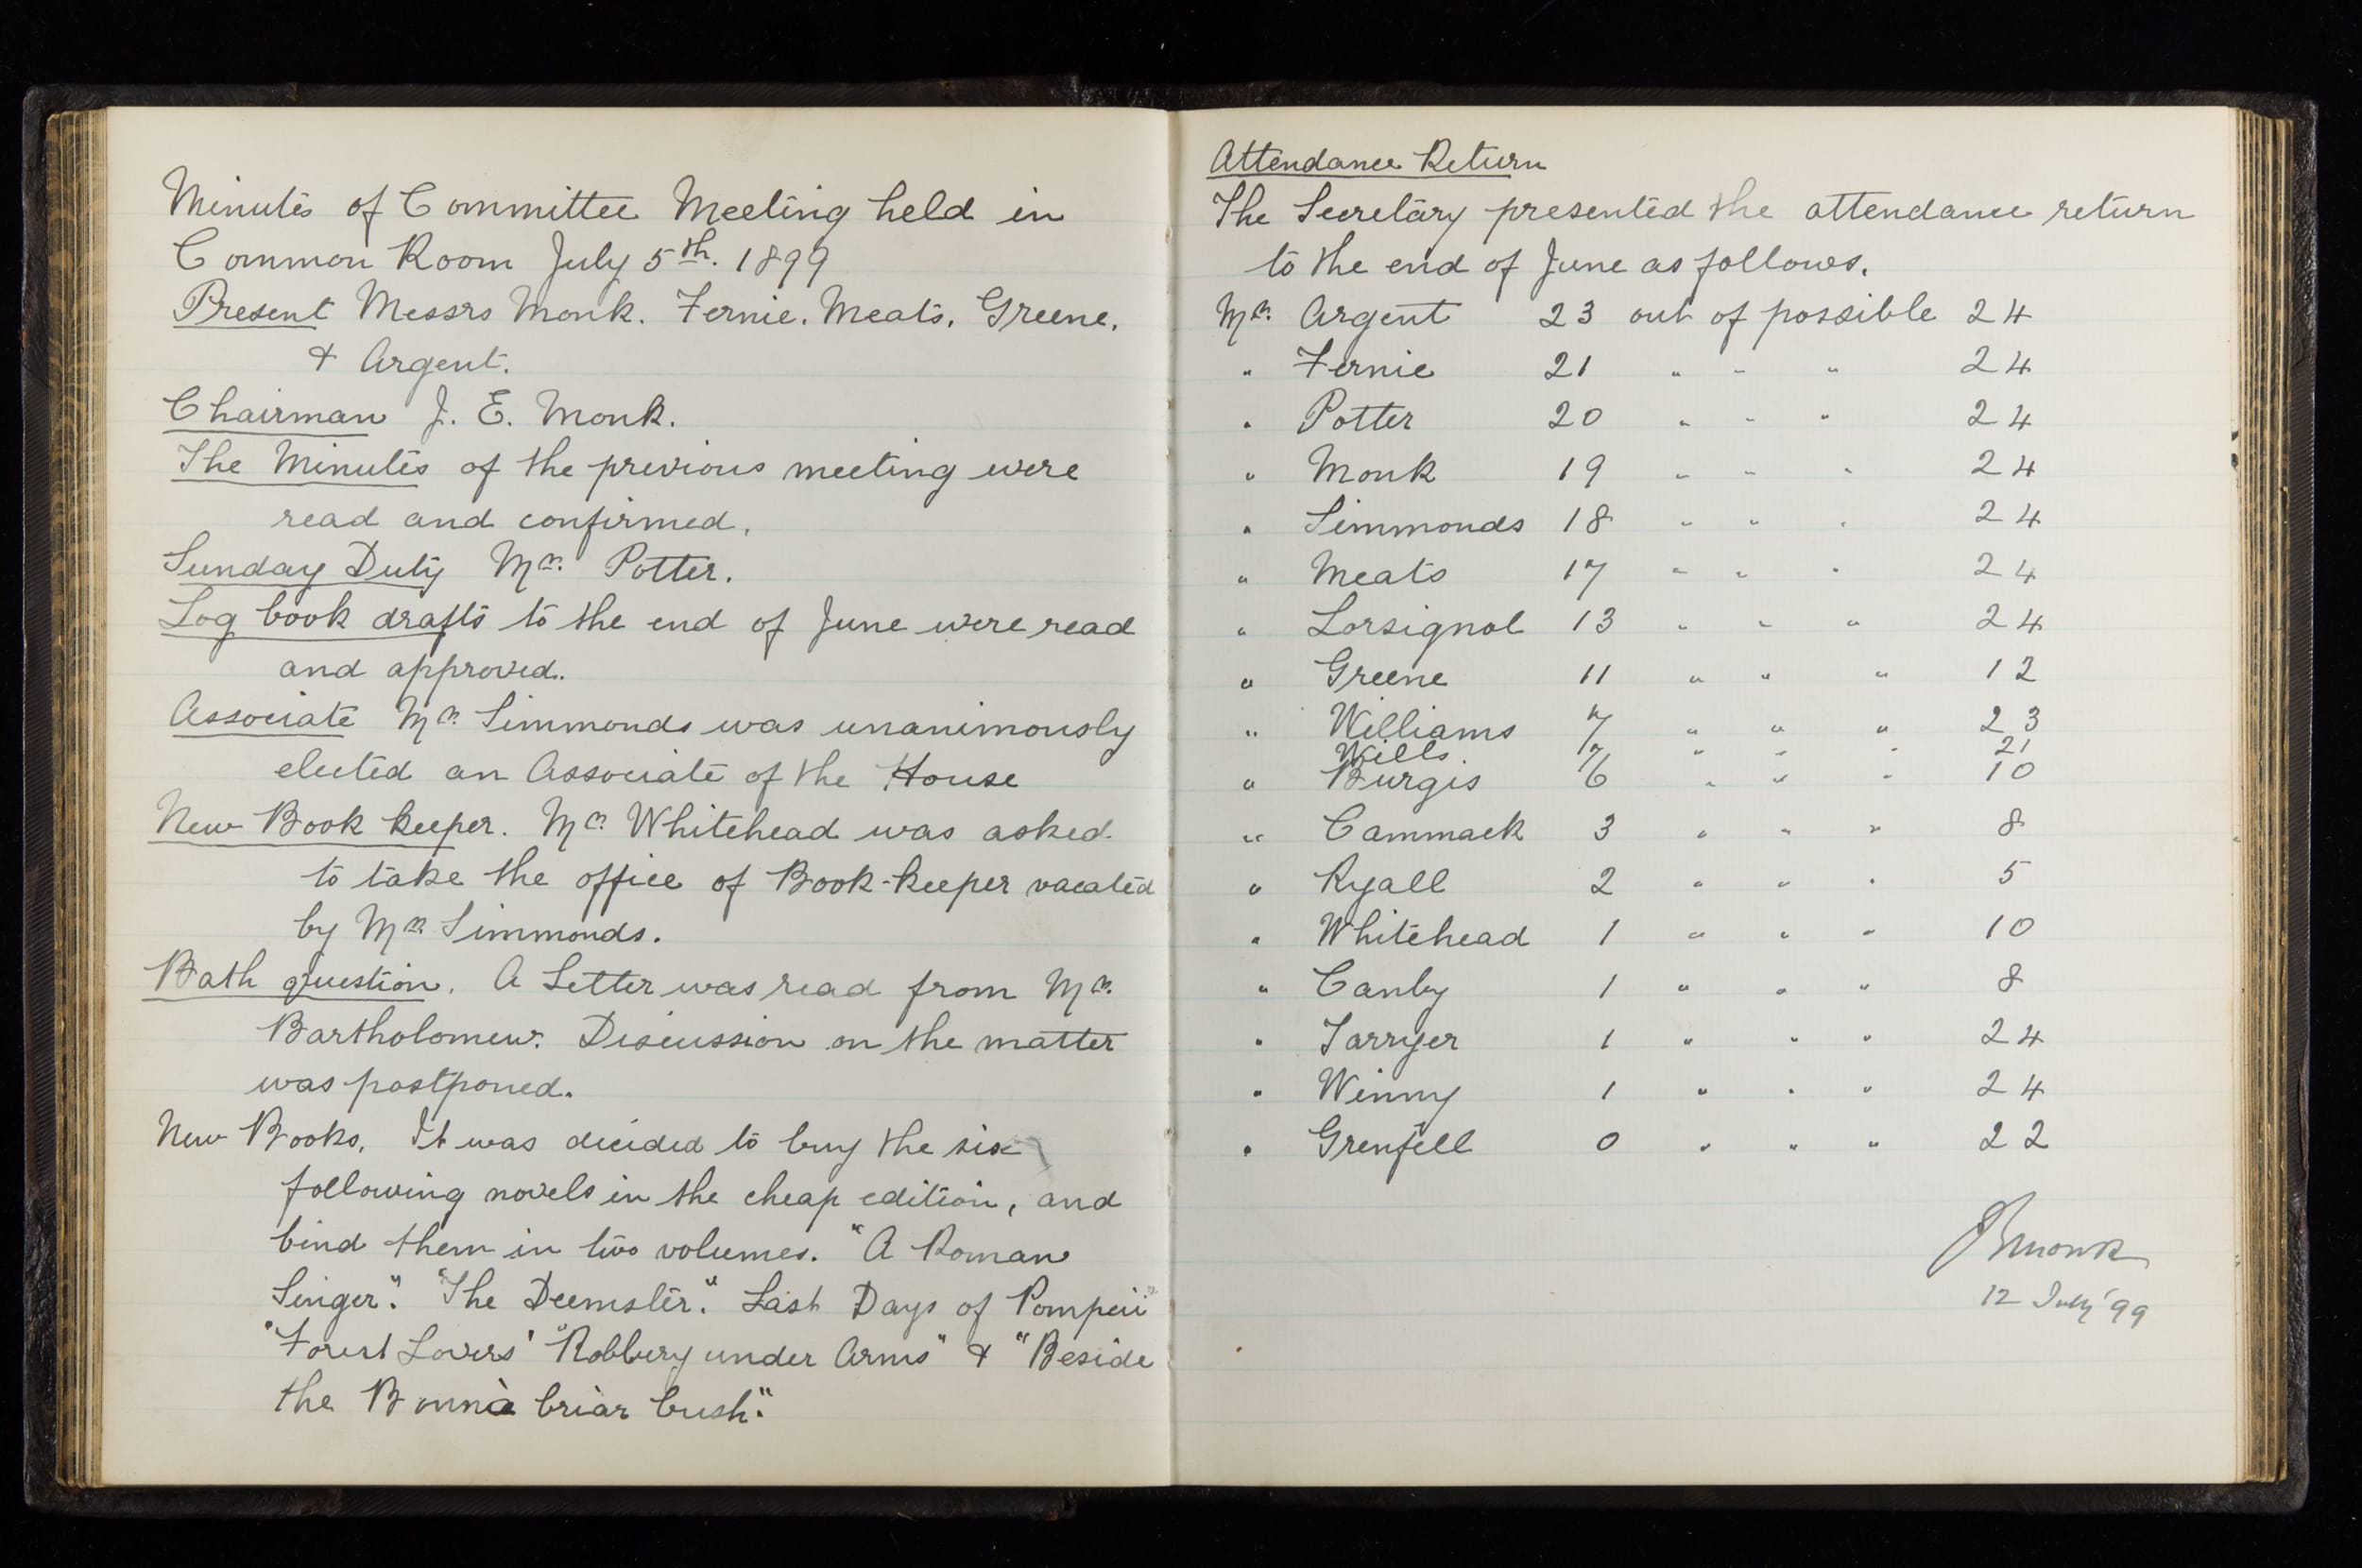 Minutes of Committee Meeting held in
Common Room July 5th. 1899
Present Messrs Monk. Fernie. Meats. Greene.
& Argent.
Chairman J. E. Monk.
The Minutes of the previous meeting were
read and confirmed.
Sunday Duty Mr. Potter.
Log book drafts to the end of June were read
and approved.
Associate Mr. Simmonds was unanimously
elected an Associate of the House
New Book keeper. Mr. Whitehead was asked
to take the office of Book-keeper vacated
by Mr. Simmonds.
Bath question. A Letter was read from Mr.
Bartholomew. Discussion on the matter
was postponed.
New Books. It was decided to buy the six
following novels in the cheap edition, and
bind them in two volumes. "A Roman
Singer". "The Deemster". Last Days of Pompeii"
"Forest Lovers' "Robbery under Arms" & "Beside
the Bonnie briar bush".
Attendance Return
The Secretary presented the attendance return
to the end of June as follows.
Mr. Argent 23 out of possible 24
" Fernie 21 " " " 24
" Potter 20 " " " 24
" Monk 19 " " " 24
" Simmonds 18 " " " 24
" Meats 17 " " " 24
" Lorsignol 13 " " " 24
" Greene 11 " " " 12
" Williams 7 " " " 23
Wills 7 " " " 21
" Burgis 6 " " " 10
" Cammack 3 " " " 8
" Ryall 2 " " " 5
" Whitehead 1 " " " 10
" Canby 1 " " " 8
" Tarryer 1 " " " 24
" Winny 1 " " " 24
" Grenfell 0 " " " 22
JEMonk
12 July '99